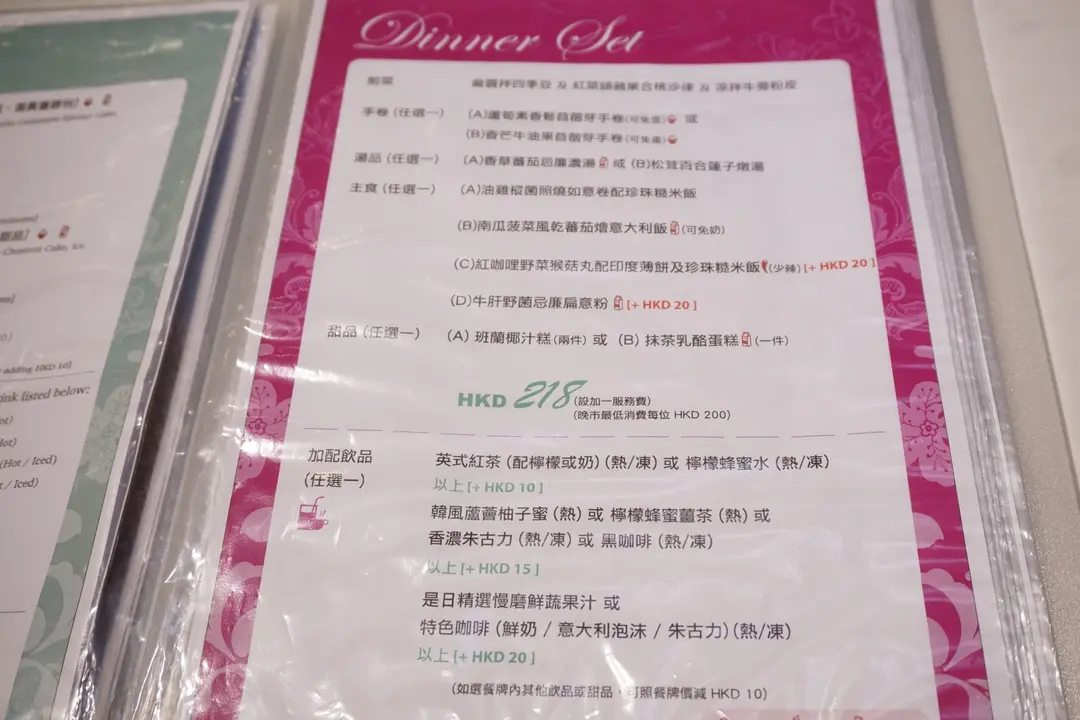 Dinner Set
前菜 麻醬拌四季豆 及 紅菜頭蘋果合桃沙律 及 涼拌牛蒡粉皮
手卷 (任選一) (A)蘆筍素香鬆苜蓿芽手卷(可免蛋) 或
(B)香芒牛油果苜蓿芽手卷(可免蛋)
湯品 (任選一) (A)香草蕃茄忌廉濃湯 或 (B)松茸百合蓮子燉湯
主食 (任選一) (A)油雞樅菌照燒如意卷配珍珠糙米飯
(B)南瓜菠菜風乾蕃茄燴意大利飯(可免奶)
(C)紅咖哩野菜猴菇丸配印度薄餅及珍珠糙米飯(少辣) [+ HKD 20 ]
(D)牛肝野菌忌廉扁意粉 [+ HKD 20 ]
甜品 (任選一) (A) 班蘭椰汁糕(兩件) 或 (B) 抹茶乳酪蛋糕(一件)
HKD 218 (設加一服務費)
(晚市最低消費每位 HKD 200)
加配飲品 英式紅茶 (配檸檬或奶) (熱/凍) 或 檸檬蜂蜜水 (熱/凍)
(任選一) 以上 [+ HKD 10 ]
韓風蘆薈柚子蜜 (熱) 或 檸檬蜂蜜薑茶 (熱) 或
香濃朱古力 (熱/凍) 或 黑咖啡 (熱/凍)
以上 [+ HKD 15 ]
是日精選慢磨鮮蔬果汁 或
特色咖啡 (鮮奶 / 意大利泡沫 / 朱古力) (熱/凍)
以上 [+ HKD 20 ]
(如選餐牌內其他飲品或甜品，可照餐牌價減 HKD 10)
Chestnut Cake, Ice
adding HKD 10)
ink listed below:
(Hot / Iced)
/ Iced)